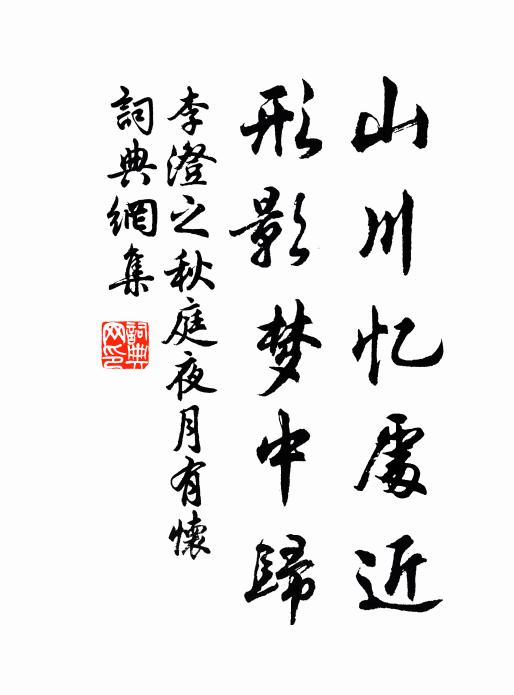 山川忆處近
形影梦中歸
李澄之秋庭夜月有懷
詞典網集
詞典网印